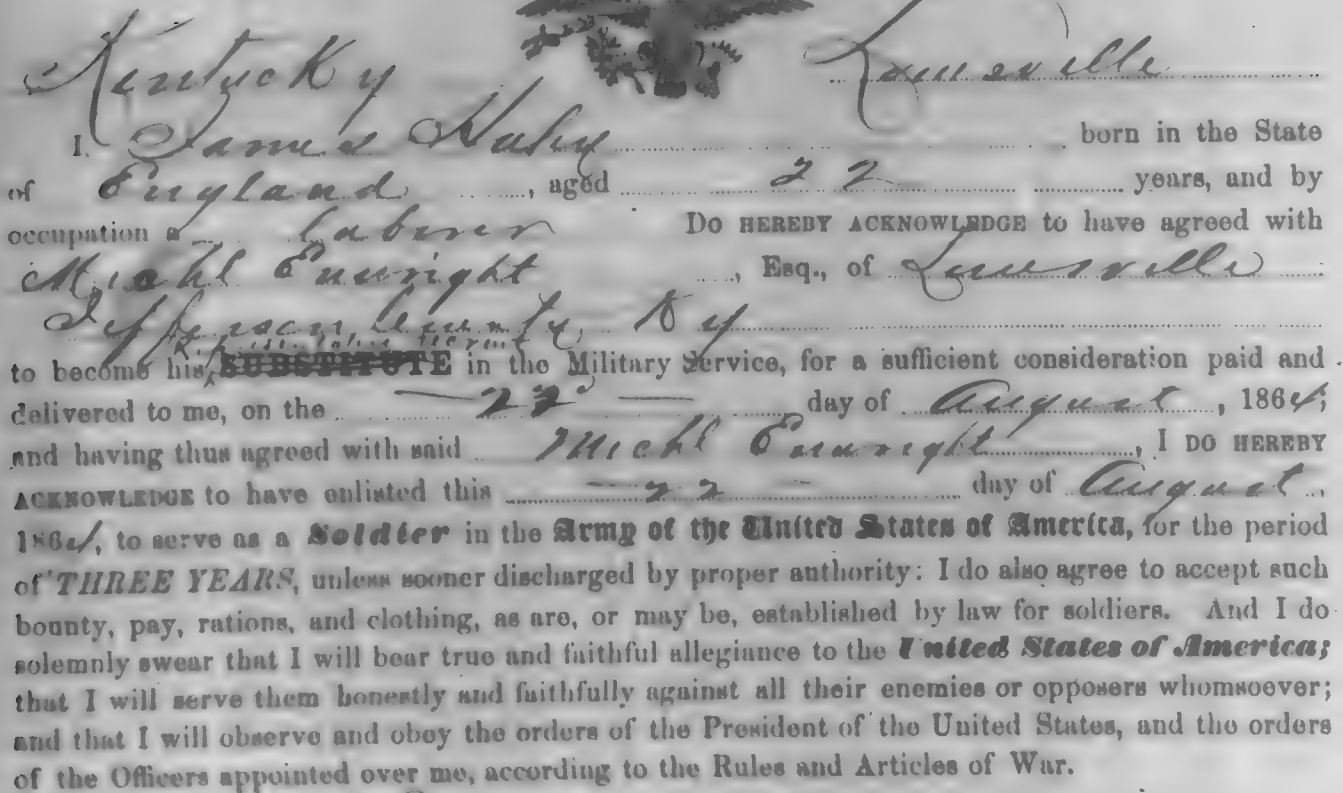 Kentucky Louisville
I, James Huby born in the State
of England, aged 22 years, and by
occupation a Laborer DO HEREBY ACKNOWLEDGE to have agreed with
Michl Enwright, Esq., of Louisville
Jefferson County, Ky
Representative Recruit
to become his SUBSTITUTE in the Military Service, for a sufficient consideration paid and
delivered to me, on the 22 day of August, 1864;
and having thus agreed with said Michl Enwright, I DO HEREBY
ACKNOWLEDGE to have enlisted this 22 day of August,
1864, to serve as a Soldier in the Army of the United States of America, for the period
of THREE YEARS, unless sooner discharged by proper authority: I do also agree to accept such
bounty, pay, rations, and clothing, as are, or may be, established by law for soldiers. And I do
solemnly swear that I will bear true and faithful allegiance to the United States of America;
that I will serve them honestly and faithfully against all their enemies or opposers whomsoever;
and that I will observe and obey the orders of the President of the United States, and the orders
of the Officers appointed over me, according to the Rules and Articles of War.